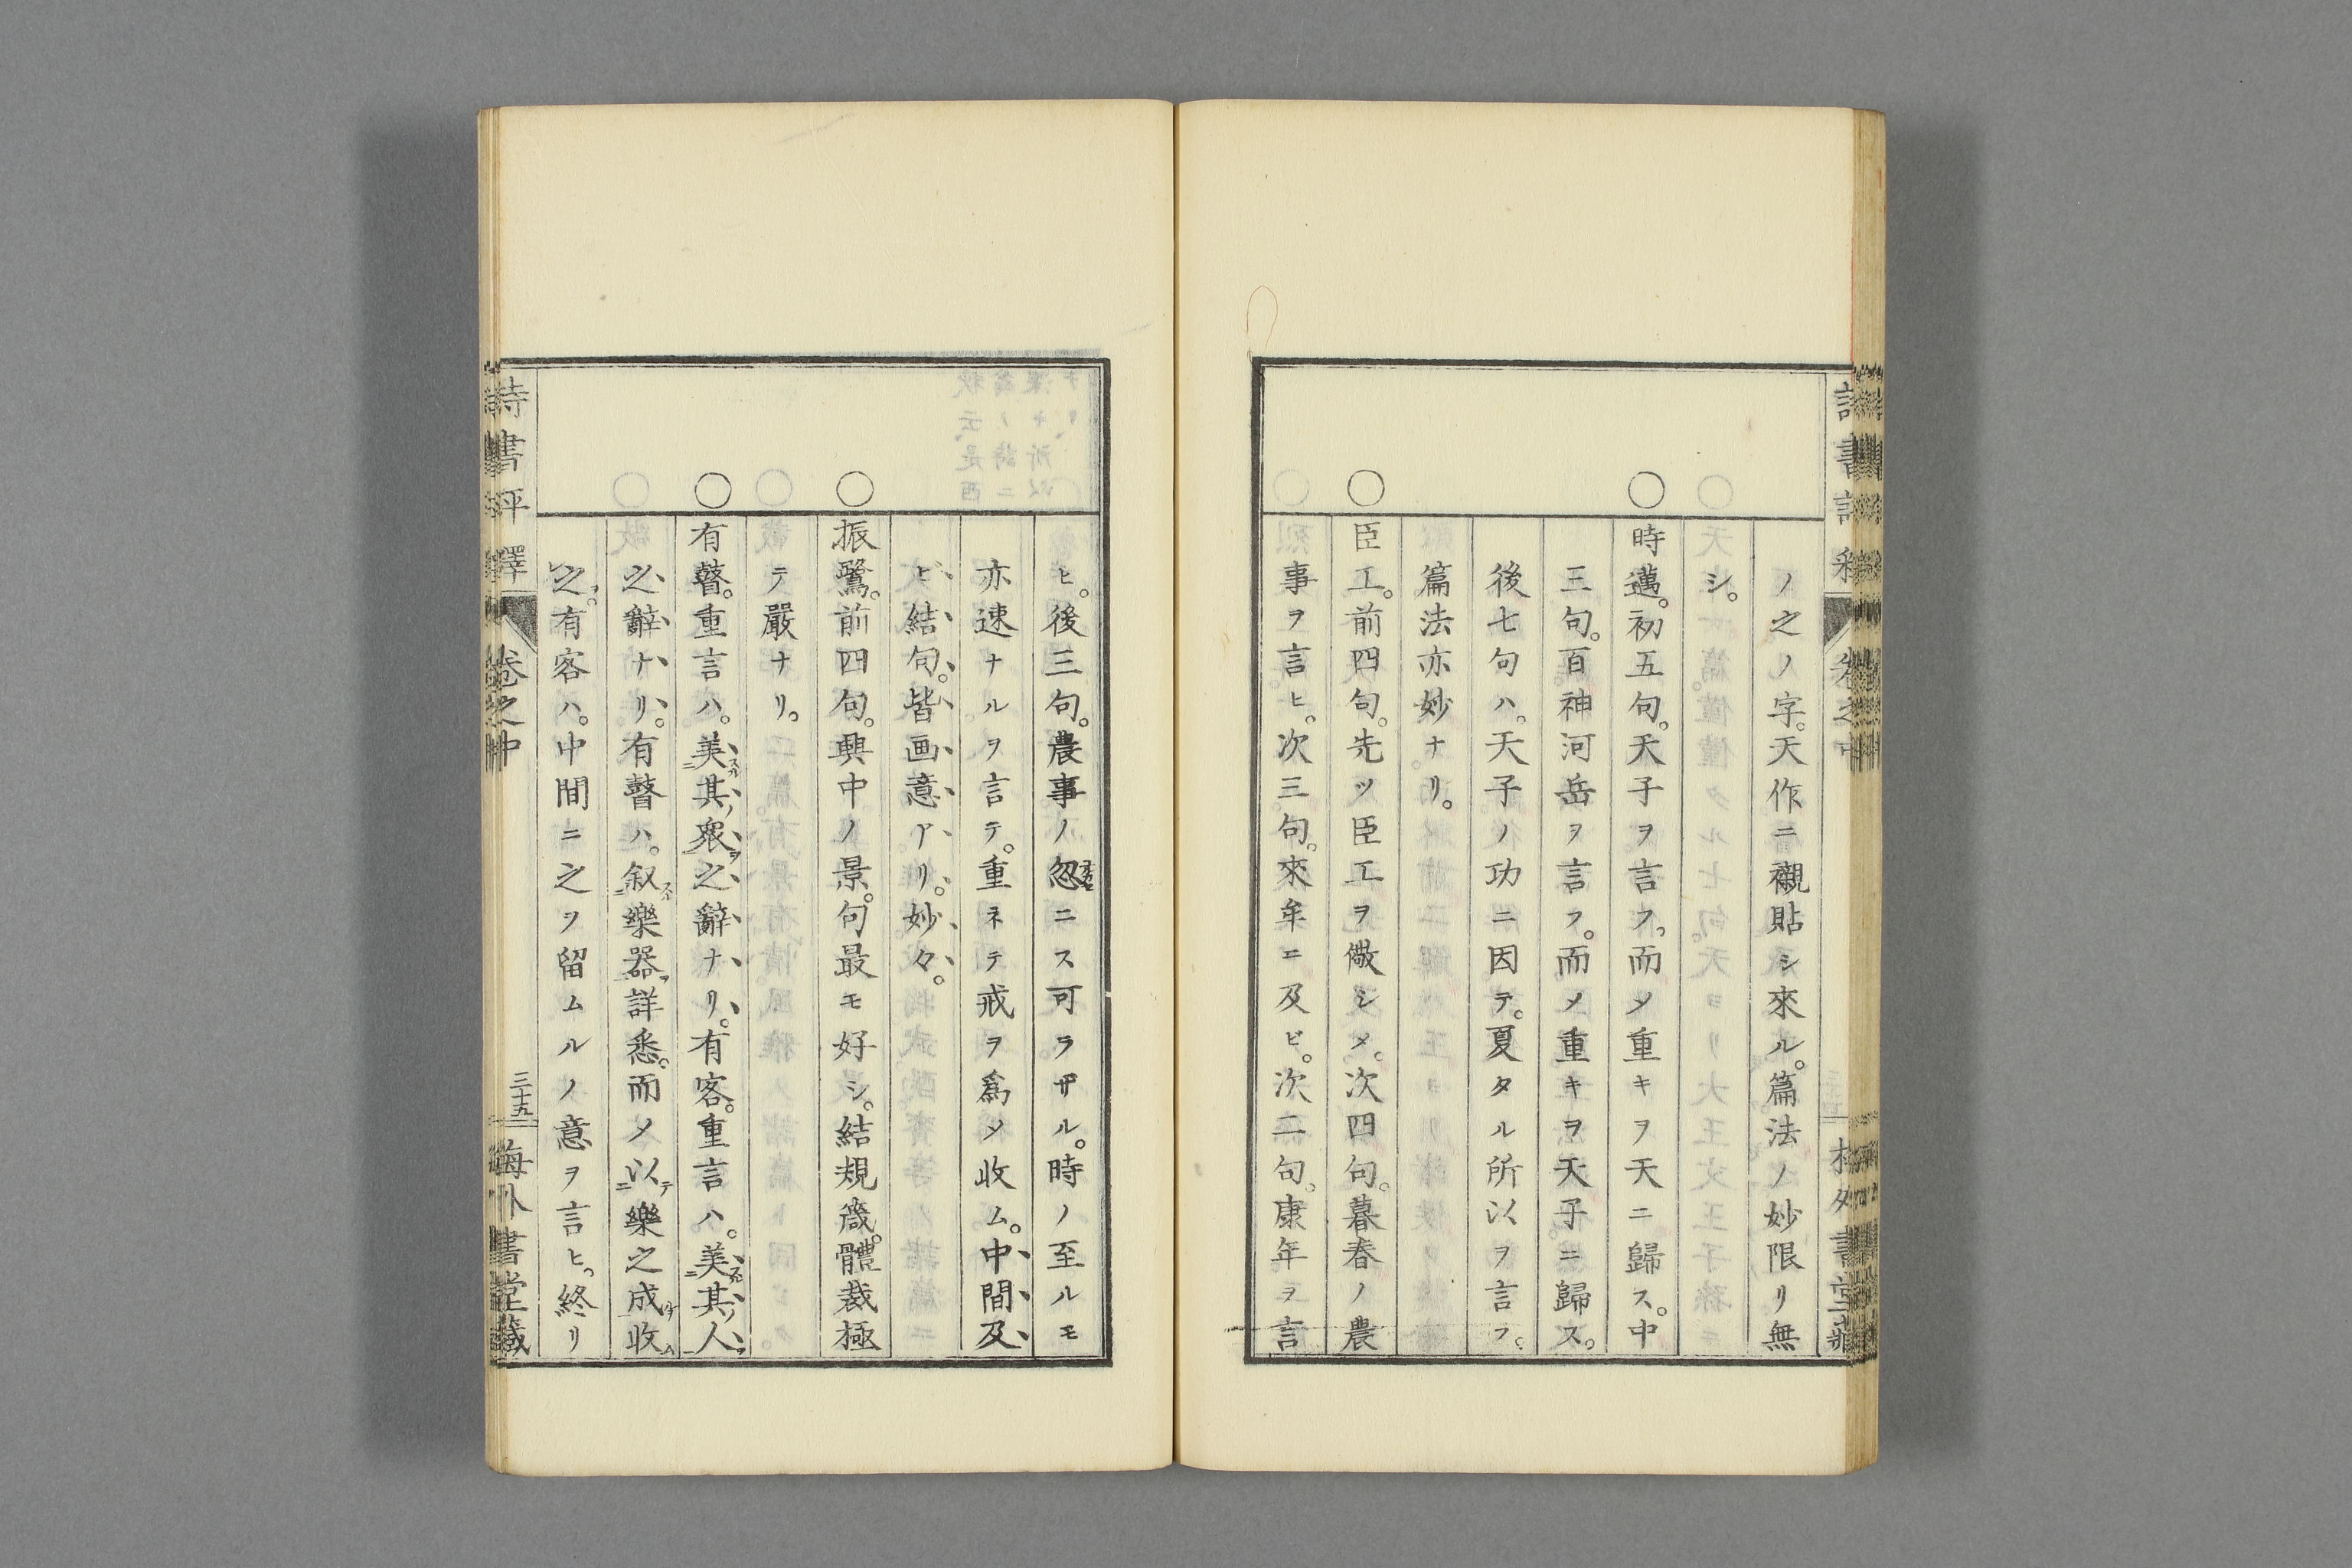 ノ之ノ字。天作ニ襯貼シ來ル。篇法ノ妙限リ無
シ。
○時邁。初五句。天子ヲ言フ。而メ重キヲ天ニ歸ス。中
三句。百神河岳ヲ言フ。而メ重キヲ天子ニ歸ス。
後七句ハ。天子ノ功ニ因テ。夏タル所以ヲ言フ。
篇法亦妙ナリ。
○臣工。前四句。先ツ臣工ヲ儆シメ。次四句。暮春ノ農
事ヲ言ヒ。次三句。來牟ニ及ビ。次二句。康年ヲ言
ヒ。後三句。農事ノ忽ニス可ラザル。時ノ至ルモ
亦速ナルヲ言テ。重ネテ戒ヲ爲メ收ム。中間及
ビ結句。皆画意アリ。妙々。
○振鷺。前四句。興中ノ景。句最モ好シ。結規箴。體裁極
テ嚴ナリ。
○有瞽。重言ハ。美スル二其ノ衆ヲ一之辭ナリ。有客。重言ハ。美スル二其ノ人ヲ一
之辭ナリ。有瞽ハ。叙スル二樂器ヲ一詳悉。而メ以テ二樂之成ルヲ一收ム
之ヲ。有客ハ。中間ニ之ヲ留ムルノ意ヲ言ヒ。終リ
詩書評釋 卷之中 三十五 梅外書堂藏